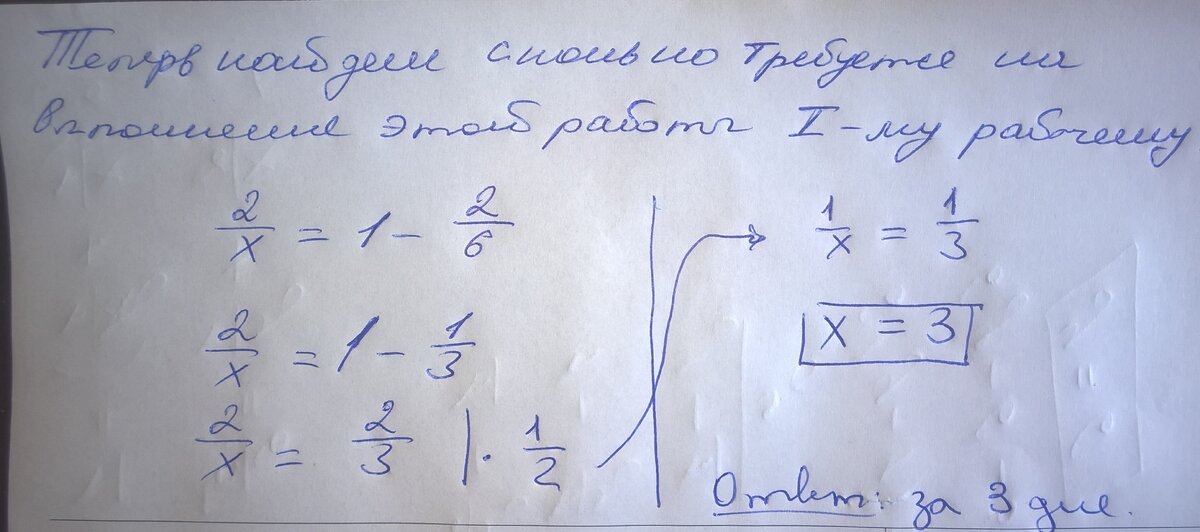 Теперь найдем сколько требуется на
выполнение этой работы I-му рабочему
2/x = 1 - 2/6
2/x = 1 - 1/3
2/x = 2/3 | · 1/2
1/x = 1/3
x = 3
Ответ: за 3 дня.